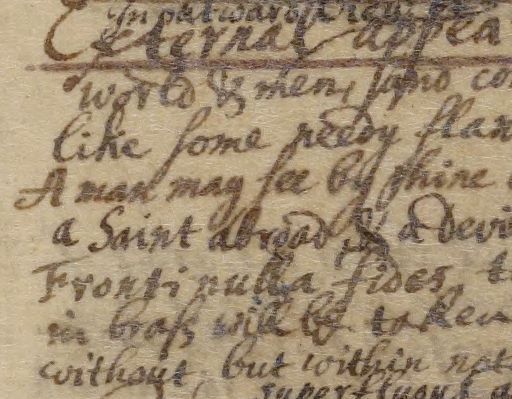 in outward
eternal appea
world & men, and co
like some needy
A man may see by thine
a Saint abroad & a Devi
Fronti nulla fides, t
in brass will be taken
without, but within not
superfluous